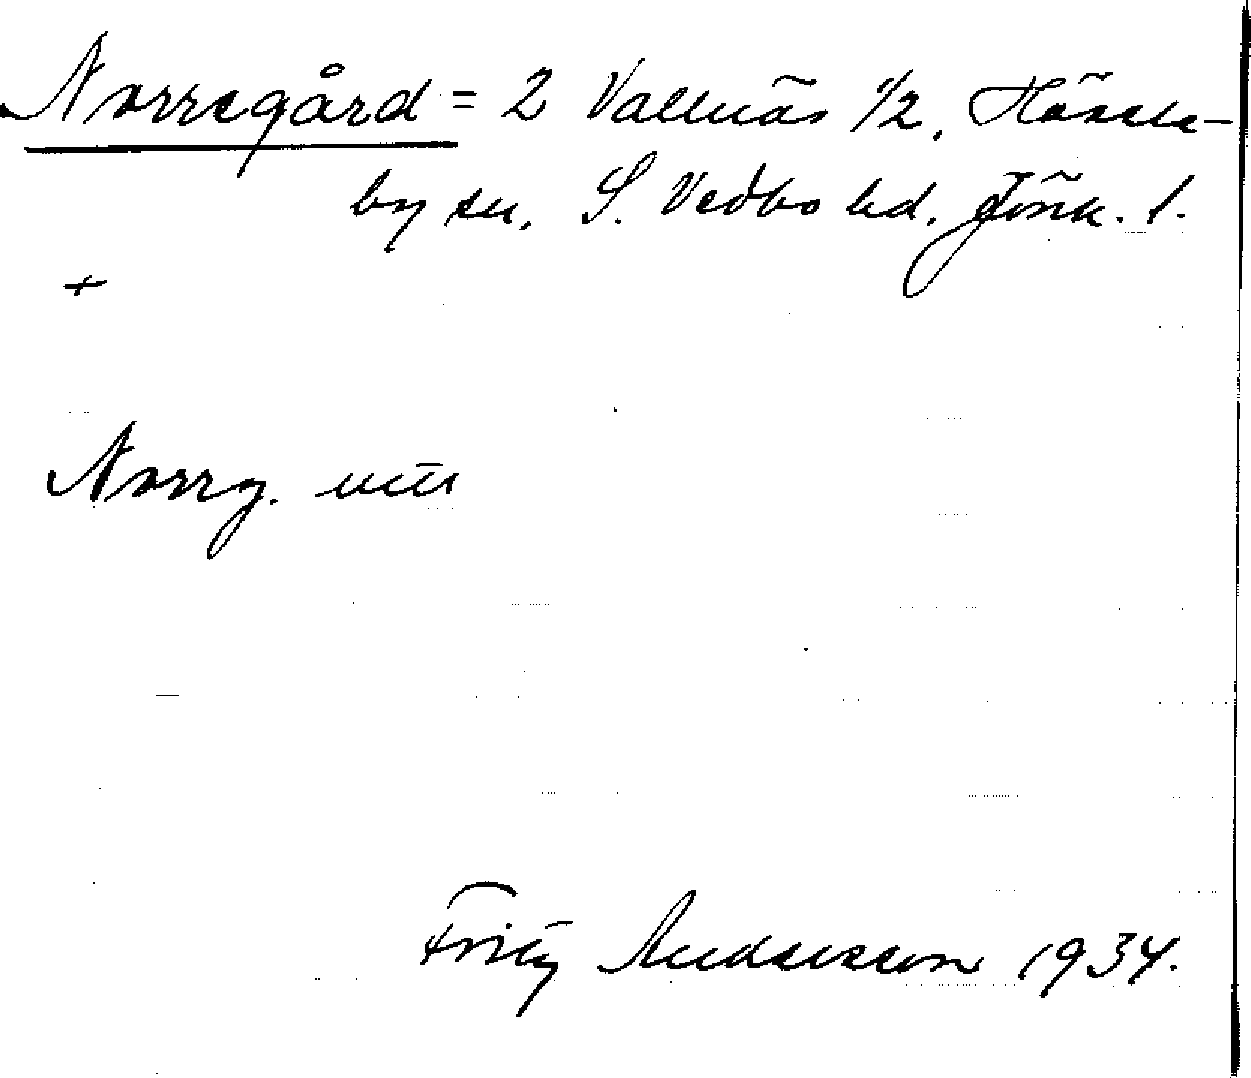 Norregård = 2 Vallnäs 1/2, Hässle-
by sn, S. Vedbo hd, Jönk. l.
+
Norrg.
Fritz Andersson 1934.